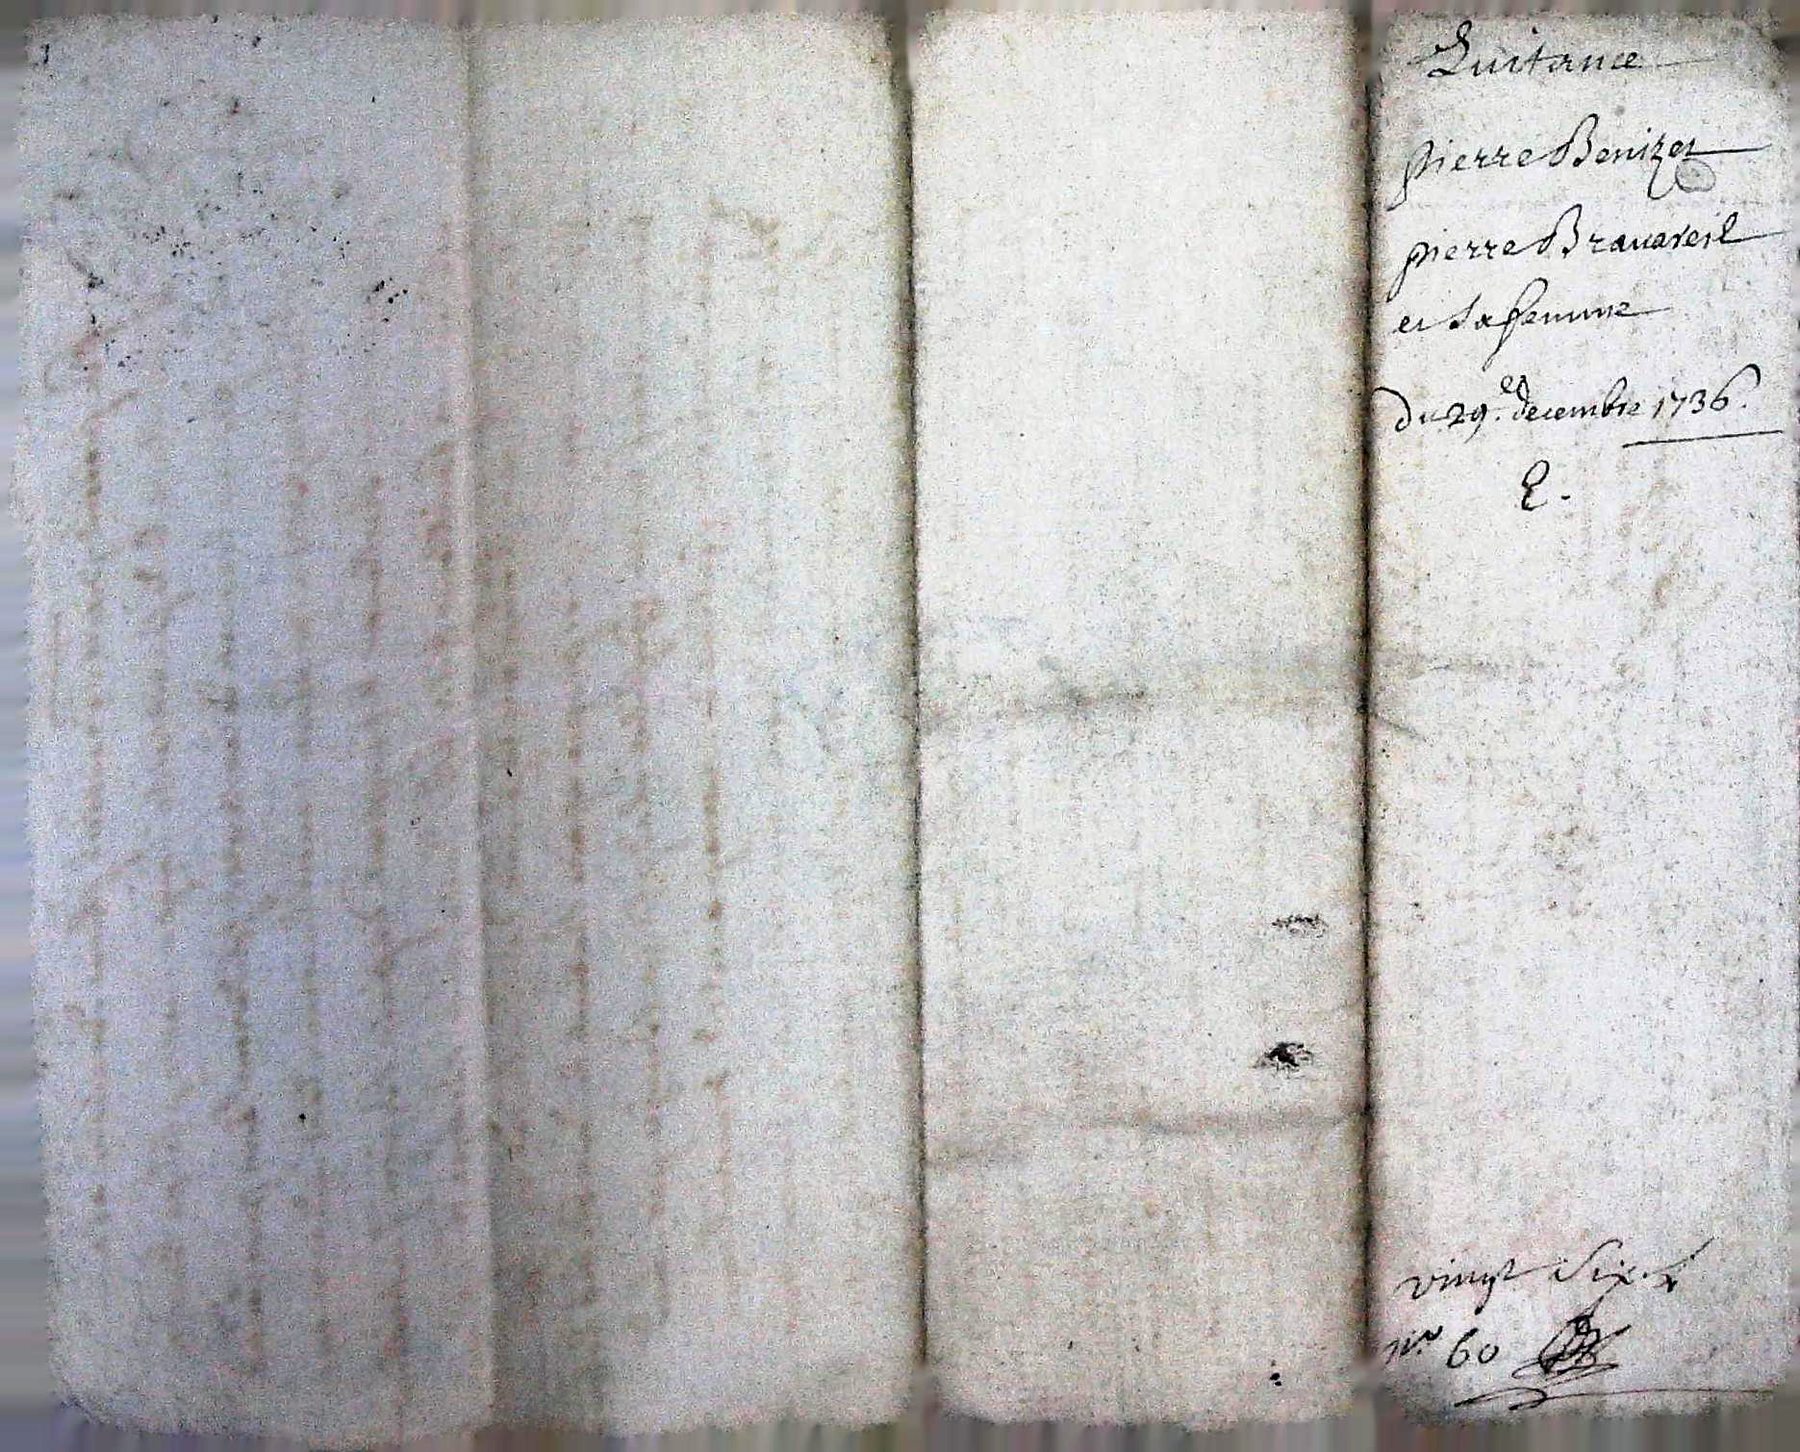 Quitance
pierre Benizet
pierre Brauareil
et sa femme
du 29.e decembre 1736.
2.
vingt six.
No. 60